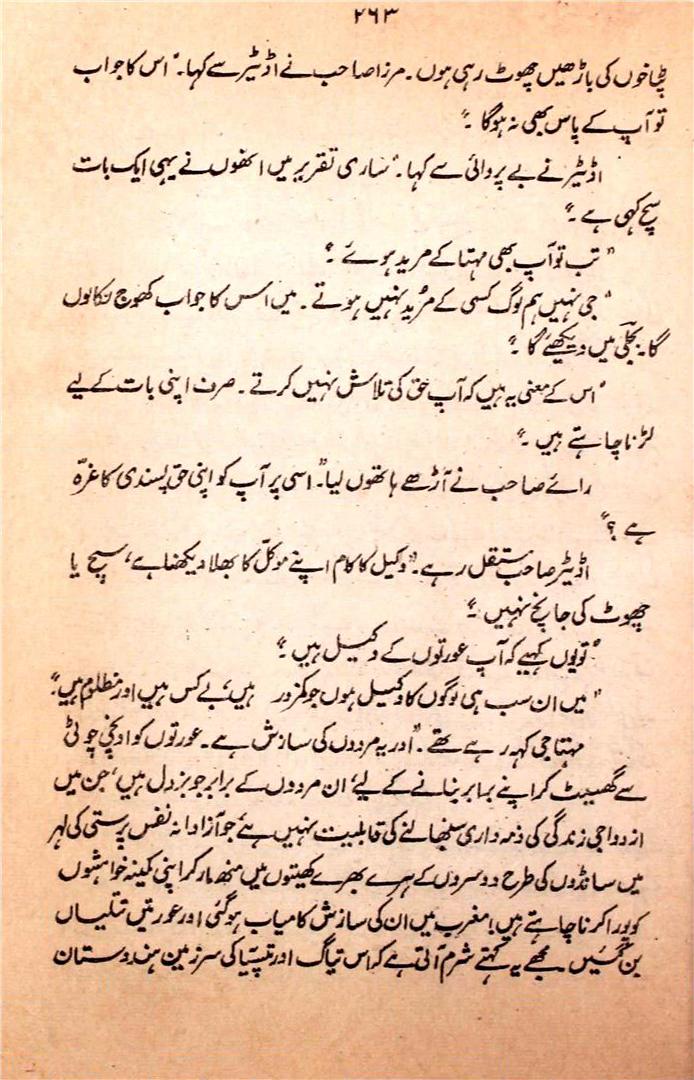 ۲۶۳
پٹاخوں کی باڑھیں چھوٹ رہی ہوں۔ مرزا صاحب نے اڈیٹر سے کہا۔ "اس کا جواب
تو آپ کے پاس بھی نہ ہوگا۔"
اڈیٹر نے بے پروائی سے کہا۔ "ساری تقریر میں انھوں نے یہی ایک بات
سچ کہی ہے۔"
"تب تو آپ بھی مہتا کے مرید ہوئے۔"
"جی نہیں ہم لوگ کسی کے مُرید نہیں ہوتے۔ میں اس کا جواب کھوج نکالوں
گا۔ بجلی میں دیکھئے گا۔"
"اس کے معنی یہ ہیں کہ آپ حق کی تلاش نہیں کرتے۔ صرف اپنی بات کے لیے
لڑنا چاہتے ہیں۔"
رائے صاحب نے آڑھے ہاتھوں لیا۔ "اسی پر آپ کو اپنی حق پسندی کا غرّہ
ہے؟"
اڈیٹر صاحب مستقل رہے۔ "وکیل کا کام اپنے موکلّ کا بھلا دیکھنا ہے، سچ یا
جھوٹ کی جانچ نہیں۔"
"تو یوں کہیے کہ آپ عورتوں کے وکیل ہیں۔"
"میں ان سب ہی لوگوں کا وکیل ہوں جو کمزور ہیں، بے کس ہیں اور مظلوم ہیں۔"
مہتا جی کہہ رہے تھے۔ "اور یہ مردوں کی سازش ہے۔ عورتوں کو اونچی چوٹی
سے گھسیٹ کر اپنے برابر بنانے کے لیے، ان مردوں کے برابر جو بزدل ہیں، جن میں
ازدواجی زندگی کی ذمہ داری سنبھالنے کی قابلیت نہیں ہے، جو آزادانہ نفس پرستی کی لہر
میں سانڈوں کی طرح دوسروں کے ہرے بھرے کھیتوں میں منھ مار کر اپنی کمینہ خواہشوں
کو پورا کرنا چاہتے ہیں! مغرب میں ان کی سازش کامیاب ہو گئی اور عورتیں تتلیاں
بن گئیں۔ مجھے یہ کہتے شرم آتی ہے کہ اس تیاگ اور تپسّیا کی سرزمین ہندوستان